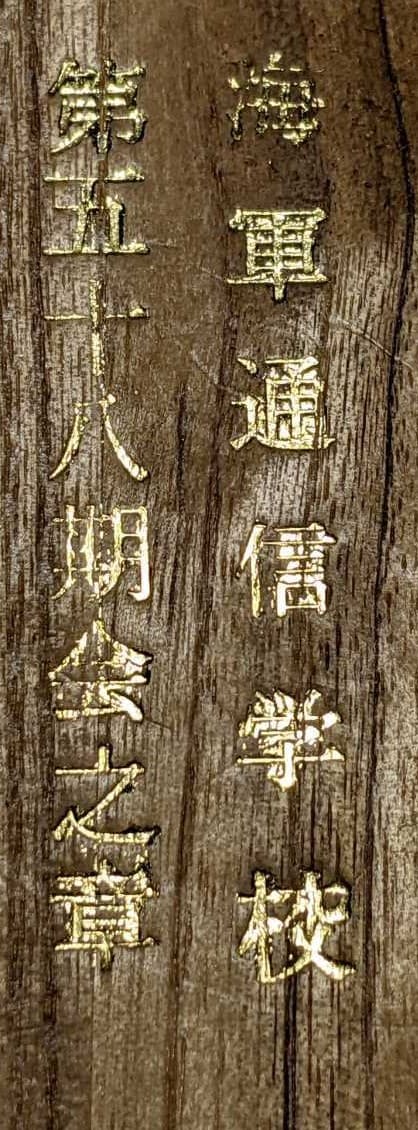 海軍通信学校
第五十八期会之章